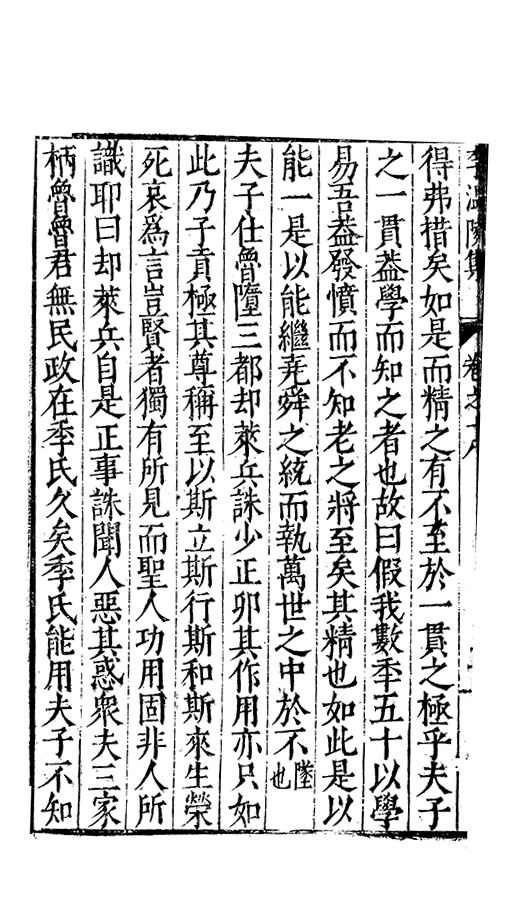 得弗措矣如是而精之有不至於一貫之極乎夫子
之一貫葢學而知之者也故曰假我數年五十以學
易吾葢發憤而不知老之將至矣其精也如此是以
能一是以能繼堯舜之統而執萬世之中於不墜也
夫子仕魯隳三都却萊兵誅少正卯其作用亦只如
此乃子貢極其尊稱至以斯立斯行斯和斯來生榮
死哀爲言豈賢者獨有所見而聖人功用固非人所
識耶曰却萊兵自是正事誅聞人惡其惑衆夫三家
柄魯魯君無民政在季氏久矣季氏能用夫子不知